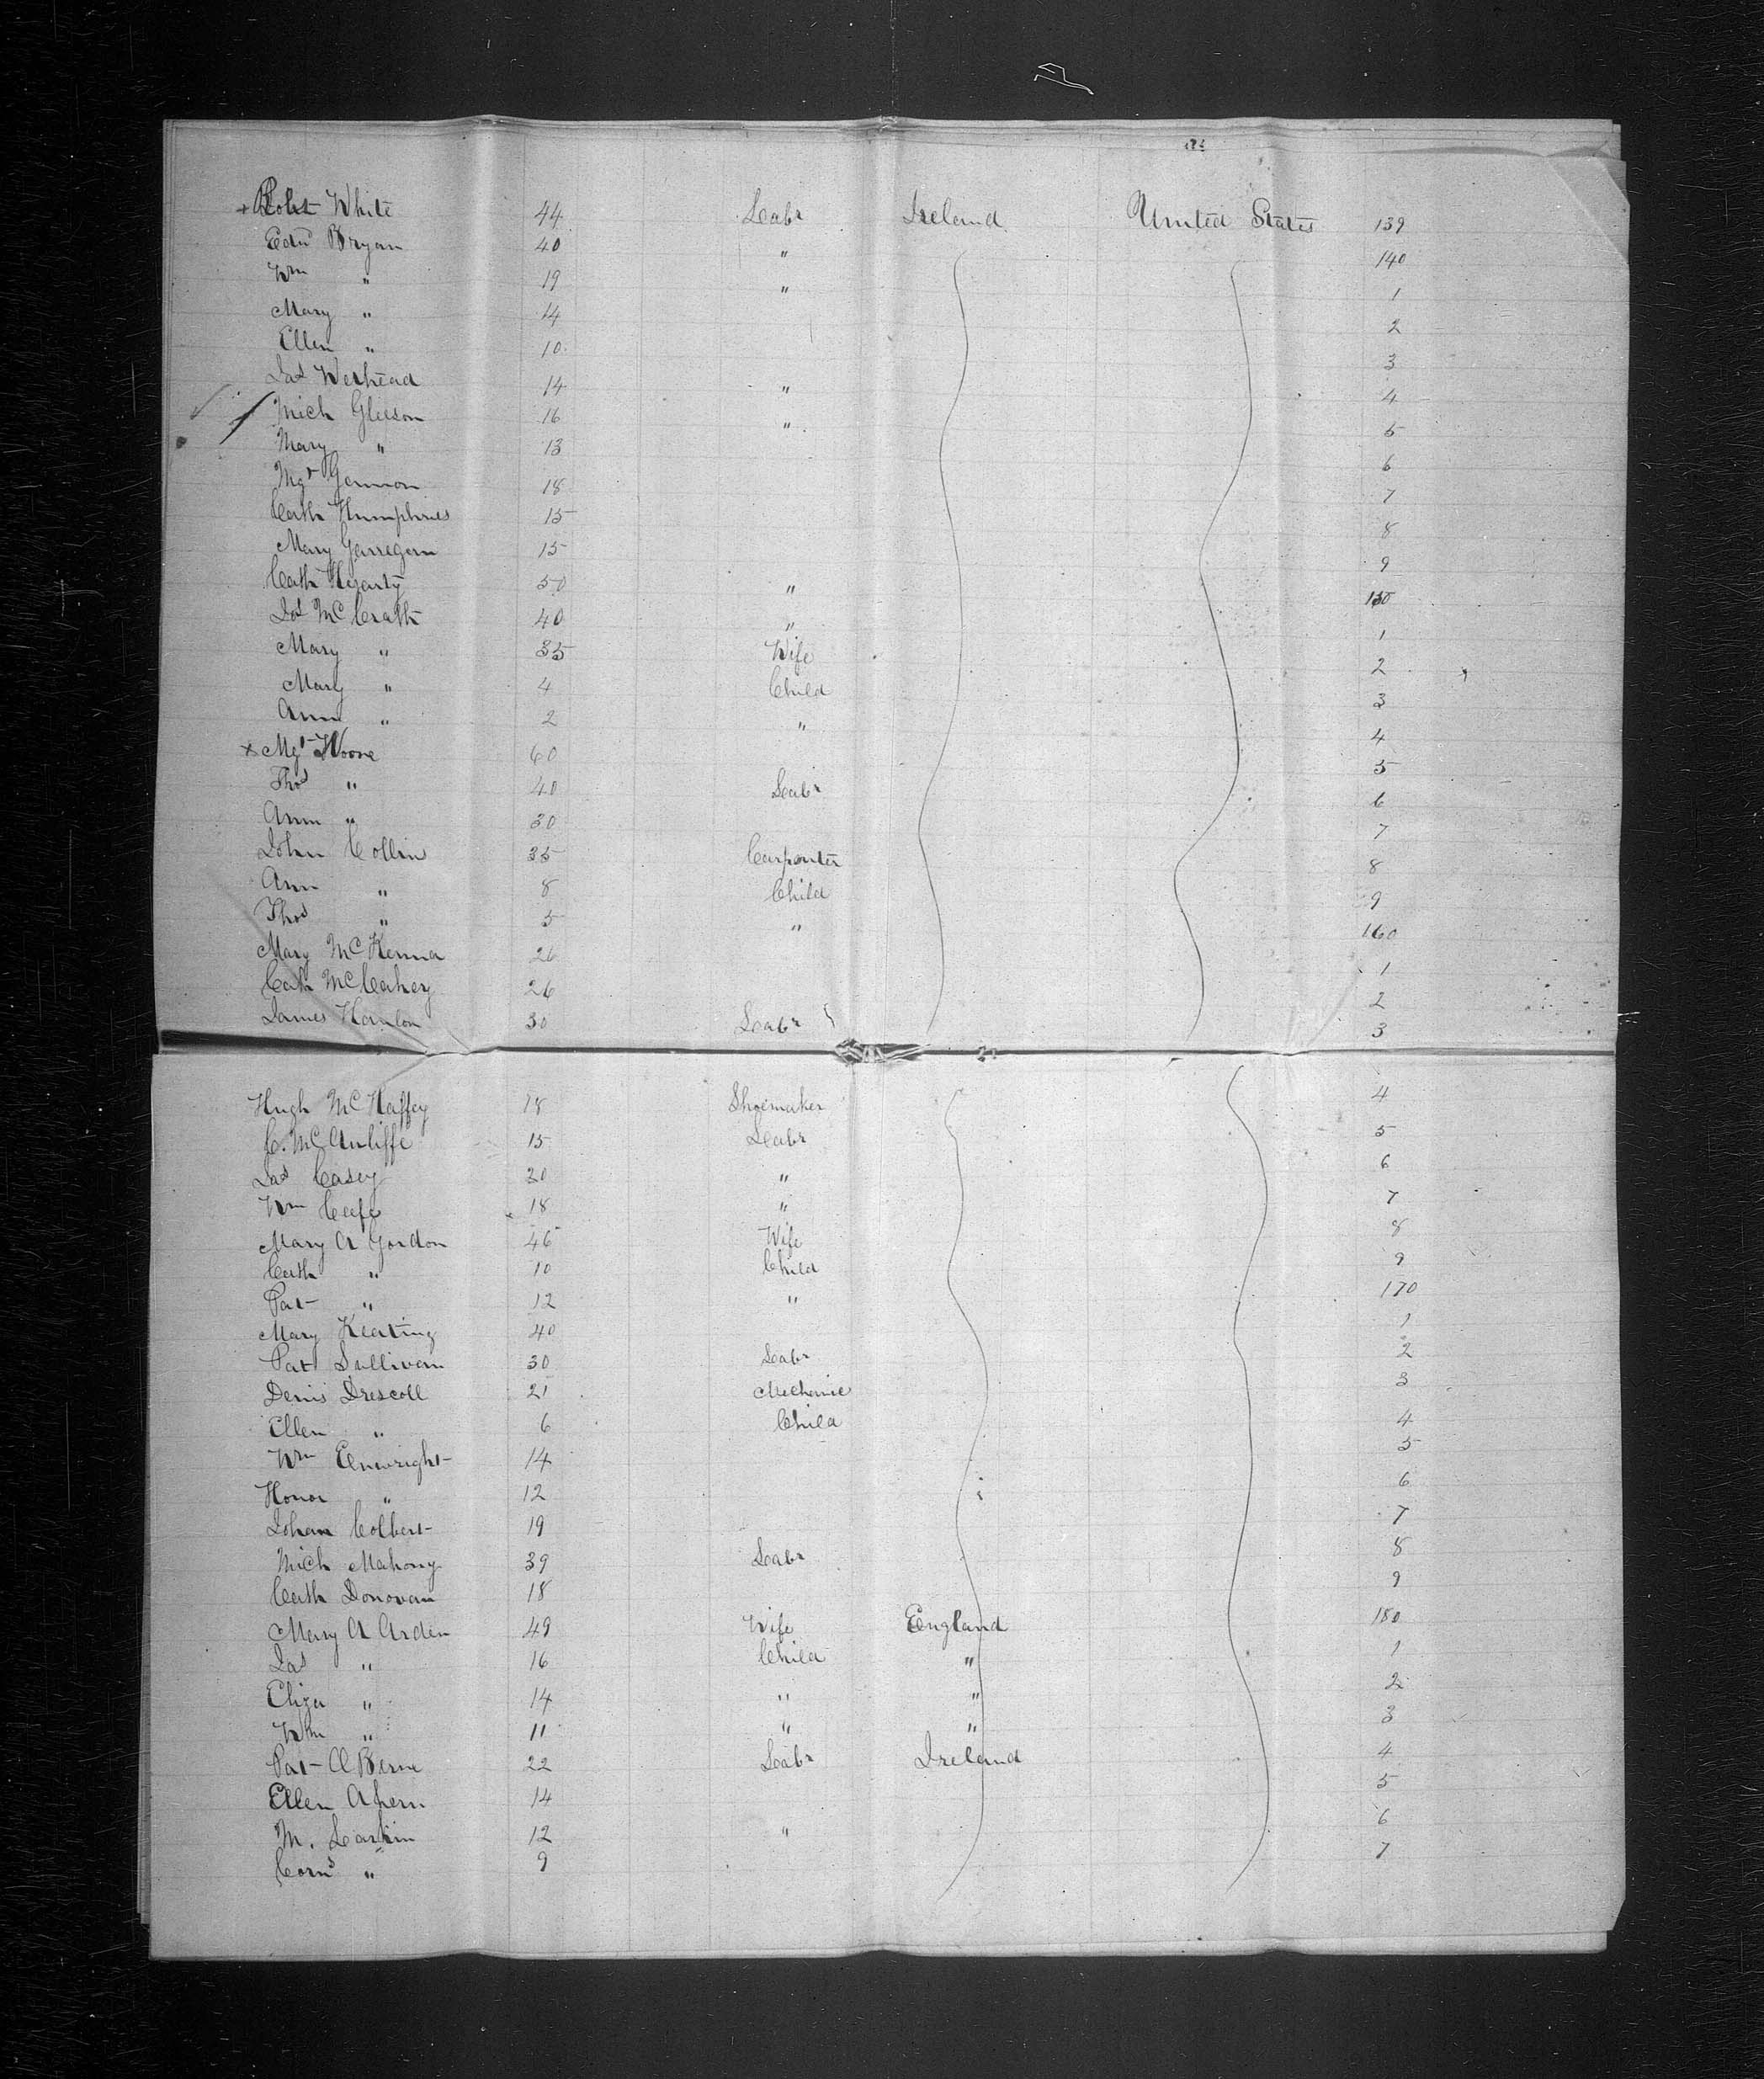 + Robt White 44 Labr Ireland United States 139
Edwd Bryan 40 " 140
Wm " 19 " 1
Mary " 14 2
Ellen " 10 3
Jas Wethead 14 " 4
Mich Gleeson 16 " 5
Mary " 13 6
Mgt Gannon 18 7
Cath Humphries 15 8
Mary Garregan 15 9
Cath Hegarty 50 " 150
Jas McCrath 40 " 1
Mary " 35 Wife 2
Mary " 4 Child 3
Ann " 2 " 4
x Mgt Hoone 60 5
Thos " 40 Labr 6
Ann " 30 7
John Collins 35 Carpenter 8
Ann " 8 Child 9
Thos " 5 " 160
Mary McKenna 26 1
Cath McCahey 26 2
James Hanlon 30 Labr 3
Hugh McHaffey 18 Shoemaker 4
C. McAuliffe 15 Labr 5
Jas Casey 30 " 6
Wm 18 " 7
Mary A Gordon 46 Wife 8
Cath " 10 Child 9
Pat " 12 " 170
Mary Keating 40 1
Pat Sullivan 30 Labr 2
Denis Drescoll 21 Mechanic 3
Ellen " 6 Child 4
Wm Enwright 14 5
Honor " 12 6
Johan Colbert 19 7
Mich Mahony 39 Labr 8
Cath Donovan 18 9
Mary A Arden 49 Wife England 180
Jas " 16 Child " 1
Eliza " 14 " " 2
Wm " 11 " " 3
Pat O Berne 22 Labr Ireland 4
Ellen Ahern 14 5
M. Larkin 12 " 6
Corns " 9 7